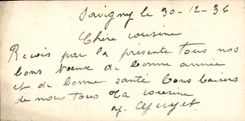 Savigny le 30-12-36
Chère cousine
Reçois par la présente tous nos
bons vœux de bonne année
et de bonne santé Bons baisers
de nous tous Ta cousine